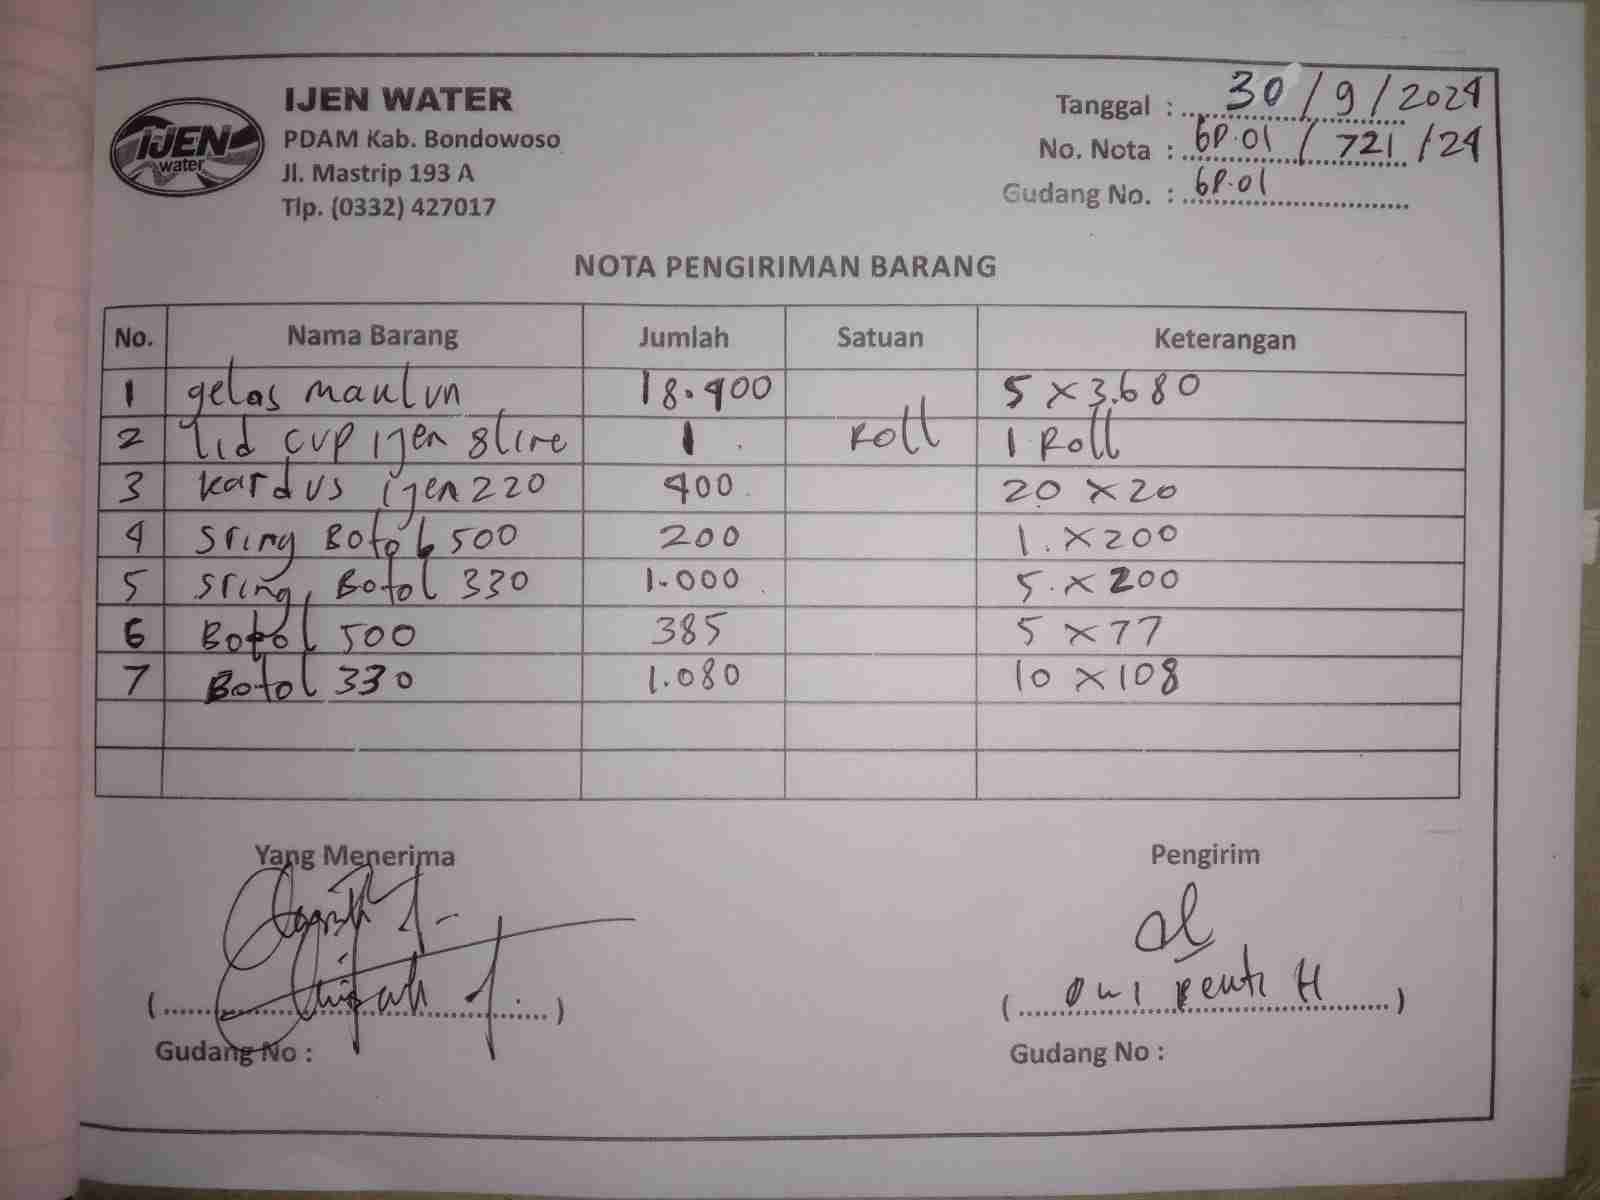 IJEN WATER
PDAM Kab. Bondowoso
Jl. Mastrip 193 A
Tlp. (0332) 427017
IJEN
water
Tanggal : 30 / 9 / 2024
No. Nota : GP.01 / 721 / 24
Gudang No. : GP.01
NOTA PENGIRIMAN BARANG
No. Nama Barang Jumlah Satuan Keterangan
1 gelas maulun 18.400 5 x 3.680
2 lid cup ijen 8 line 1 Roll 1 Roll
3 kardus ijen 220 400 20 x 20
4 sring Botol 500 200 1. x 200
5 sring Botol 330 1.000 5. x 200
6 Botol 500 385 5 x 77
7 Botol 330 1.080 10 x 108
Yang Menerima Pengirim
(....................) (.... H ....)
Gudang No : Gudang No :